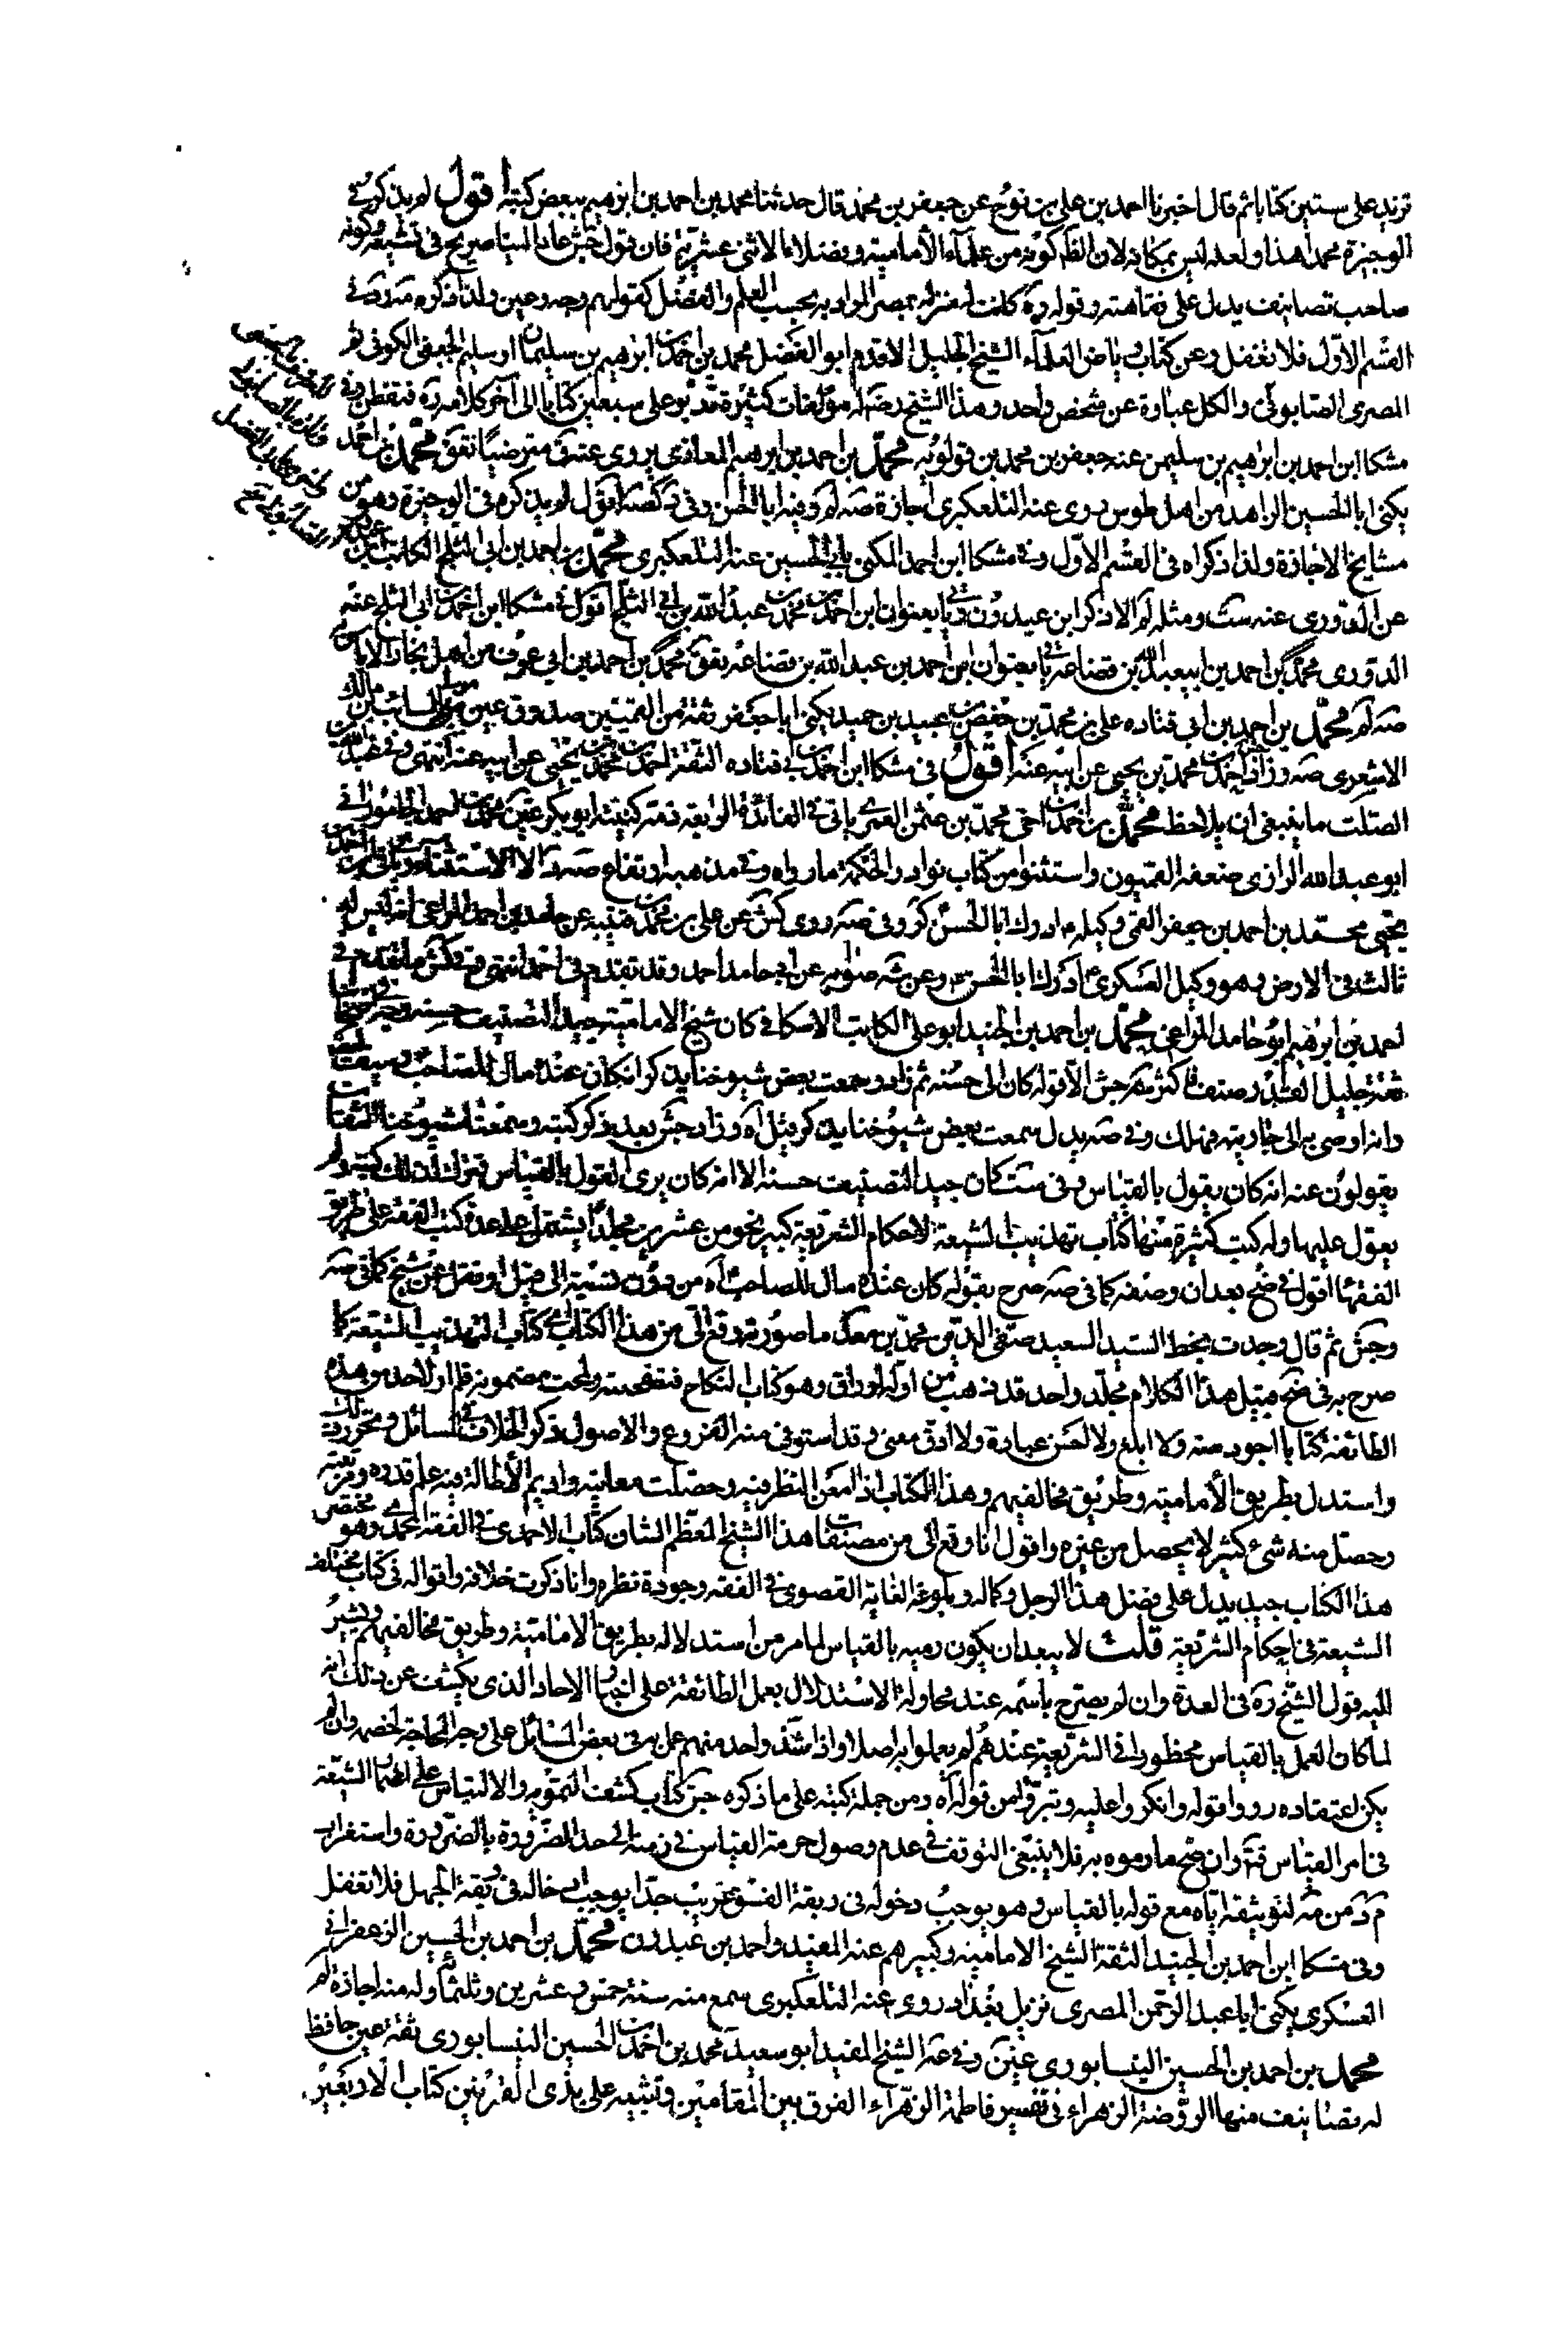 تزيد على ستين كتابا ثم قال اخبرنا احمد بن على بن نوح عن جعفر بن محمد قال حدثنا محمد بن احمد بن ابرهيم ببعض كتبه اقول لم يذكر في
الوجيزة محمدا هذا ولعله ليس بمكانه لان الظ كونه من علماء الأمامية وفضلائنا الاثنى عشرية فان قول جش عاد الينا صريح في تشيعه وكونه
صاحب تصانيف يدل على فقاهته وقوله ره كانت له منزلة بمصر المراد به بحسب العلم والفضل كقولهم وجه وعين ولذا ذكره في
القسم الاول فلا تغفل وعن كتاب رياض العلماء الشيخ الجليل الاقدم ابو الفضل محمد بن احمد بن ابرهيم بن سليمان او سليم الجعفى الكوفى ثم
المصرى الصابونى والكل عبارة عن شخص واحد وهذا الشيخ رضه له مؤلفات كثيرة تربو على سبعين كتابا الى آخر كلامه ره فتفطن وفى
مشكا ابن احمد بن ابراهيم بن سليمن عنه جعفر بن محمد بن قولويه محمد بن احمد بن ابرهيم المعاذى يروى عنه ق مترضيا تعق محمد بن احمد
يكنى ابا الحسين الزاهد من اهل طوس روى عنه التلعكبرى اجازة صه لم وفيه ابا الحسن وفى اقول لم يذكره فى الوجيزة وهو من
مشايخ الاجازة ولذا ذكراه فى القسم الاول وفى مشكا ابن احمد المكنى بابى الحسين عنه التلعكبرى محمد بن احمد بن ابى الثلج الكاتب
عن الدورى عنه ست ومثله لم الا ذكر ابن عبدون وياتى بعنوان ابن احمد بن محمد بن عبد الله بن ابى الثلج اقول فى مشكا ابن احمد بن ابى الثلج عنه
الدورى محمد بن احمد بن عبد الله بن قضاعه ياتى بعنوان ابن احمد بن عبد الله بن قضاعه تعق محمد بن احمد بن ابى عوف من اهل بخارا لا باس به
صه لم محمد بن احمد بن ابى قتاده على بن محمد بن حفص بن عبيد بن حميد يكنى ابا جعفر ثقة من القميين صدوق عين مولى السائب بن مالك
الاشعرى صه وزاد احمد بن محمد بن يحيى عن ابيه عنه اقول فى مشكا ابن احمد بن ابى قتاده الثقة احمد بن محمد بن يحيى عن ابيه عنه انتهى وفى عبد الله بن
الصلت ما ينبغى ان يلاحظ محمد بن احمد بن اخى محمد بن عثمن العمرى ياتى فى الفائدة الرابعة ذمه كنيته ابو بكر محمد بن احمد الجامورانى
ابو عبد الله الرازى ضعفه القميون واستثنوا من كتاب نوادر الحكمة ما رواه وفى مذهبه ارتفاع صه الا الاستثناء
يحيى محمد بن احمد بن جعفر القمى وكيله م ادرك ابا الحسن كر وفى صه روى كش عن على بن محمد بن قتيبه عن حامد بن احمد المراغى انه ليس له
ثالث فى الارض وهو وكيل العسكرى ادرك ابا الحسن وعن صوابه عن ابى حامد احمد وقد تقدم فى احمد انتهى وفى كش ما تقدم فى
احمد بن ابرهيم ابو حامد المراغى محمد بن احمد بن الجنيد ابو على الكاتب الاسكافى كان شيخ الامامية جيد التصنيف حسنه وجه فى اصحابنا
ثقة جليل القدر صنف فاكثر صه جش الا قوله كان الى حسنه ثم زاد وسمعت بعض شيوخنا يذكر انه كان عنده مال للصاحب وسيف
وانه اوصى به الى جاريته فهلك وفى صه بدل سمعت بعض شيوخنا يذكر قيل آه وزاد جش بعد ذكر كتبه وسمعت شيوخنا الثقات
يقولون عنه انه كان يقول بالقياس وفى ست كان جيد التصنيف حسنه الا انه كان يرى القول بالقياس فترك لذلك كتبه ولم
يعول عليها وله كتب كثيرة منها كتاب تهذيب الشيعة لاحكام الشريعة كبير نحو من عشرين مجلدا يشتمل على عدة كتب الفقه على طريقة
الفقهاء اقول فى ضح بعد ان وصفه كما فى صه صرح بقوله كان عنده مال للصاحب آه من دون نسبته الى قيل او نقل عن شيخ كما فى صه
وجش ثم قال وجدت بخط السيد السعيد صفى الدين محمد بن معد ما صورته وقع الى من هذا الكتاب اى كتاب التهذيب الشيعة كما
صرح به فى ضح قبيل هذا الكلام مجلد واحد قد ذهب من اوله اوراق وهو كتاب النكاح فتصفحته ولمحت مضمونه فلم ار لاحد من هذه
الطائفة كتابا اجود منه ولا ابلغ ولا احسن عبارة ولا ادق معنى وقد استوفى منه الفروع والاصول وذكر الخلاف فى المسائل وتحرر ذلك
واستدل بطريق الأمامية وطريق مخالفيهم وهذا الكتاب اذا امعن النظر فيه وحصلت معانيه واديم الأطالة فيه علم قدره ومرتبته
وحصل منه شئ كثير لا يحصل من غيره واقول انا وقع الى من مصنفات هذا الشيخ المعظم الشان كتاب الاحمدى فى الفقه المحمدى وهو مختصر
هذا الكتاب جيد يدل على فضل هذا الرجل وكماله وبلوغه الغاية القصوى فى الفقه وجودة نظره وانا ذكرت خلافه واقواله فى كتاب مختلف
الشيعة فى احكام الشريعة قلت لا يبعد ان يكون رميه بالقياس لما مر من استدلاله بطريق الامامية وطريق مخالفيهم ويشير
اليه قول الشيخ ره فى العدة وان لم يصرح باسمه عند محاولة الاستدلال بعمل الطائفة على اخبار الاحاد الذى يكشف عن ذلك انه
لما كان العمل بالقياس محظورا فى الشريعة عندهم لم يعملوا به اصلا واذا شذ واحد منهم عمل به فى بعض المسائل على وجه المحاجة لخصمه وان لم
يكن اعتقاده ردوا قوله وانكروا عليه وتبرؤا من قوله آه ومن جملة كتبه على ما ذكره جش كتاب كشف التمويه والالباس على اغمار الشيعة
فى امر القياس فتم وان صح ما رموه به فلا ينبغى التوقف فى عدم وصول حرمة القياس فى زمنه الى حد الضرورة بالضرورة واستغراب
م د من مه لتوثيقه اياه مع قوله بالقياس وهو يوجب دخوله فى ربقة الفسق غريب جدا يوجب ادخاله فى ربقة الجهل فلا تغفل
وفى مشكا ابن احمد بن الجنيد الثقة الشيخ الامامية وكبيرهم عنه المفيد واحمد بن عبدون محمد بن احمد بن الحسين الزعفرانى
العسكرى يكنى ابا عبد الرحمن المصرى نزيل بغداد روى عنه التلعكبرى سمع منه سنة خمس وعشرين وثلثمائة وله منه اجازة لم
محمد بن احمد بن الحسين النيسابورى غين وفى عه الشيخ المفيد ابو سعيد محمد بن احمد بن الحسين النيسابورى ثقة عين حافظ
له تصانيف منها الروضة الزهراء فى تفسير فاطمة الزهراء الفرق بين المقامين وتشبيه على بذى القرنين كتاب الاربعين